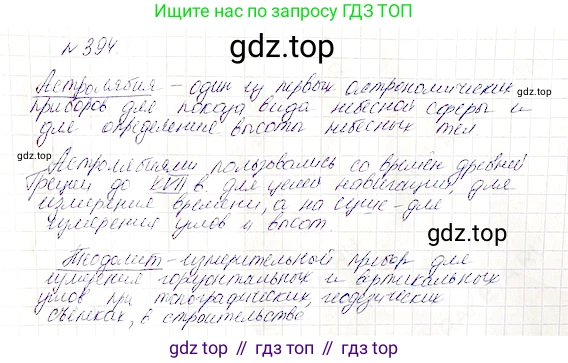 Ищите нас по запросу ГДЗ ТОП
gdz.top
№394
Астролябия – один из первых астрономических
приборов для показа вида небесной сферы и
для определения высоты небесных тел.
Астролябиями пользовались со времён древней
Греции до XVII в для целей навигации, для
измерения времени, а на суше – для
измерения углов и высот.
gdz.top
Теодолит – измерительный прибор для
измерения горизонтальных и вертикальных
углов при топографических, геодезических
съёмках, в строительстве
gdz.top // гдз топ // гдз.топ